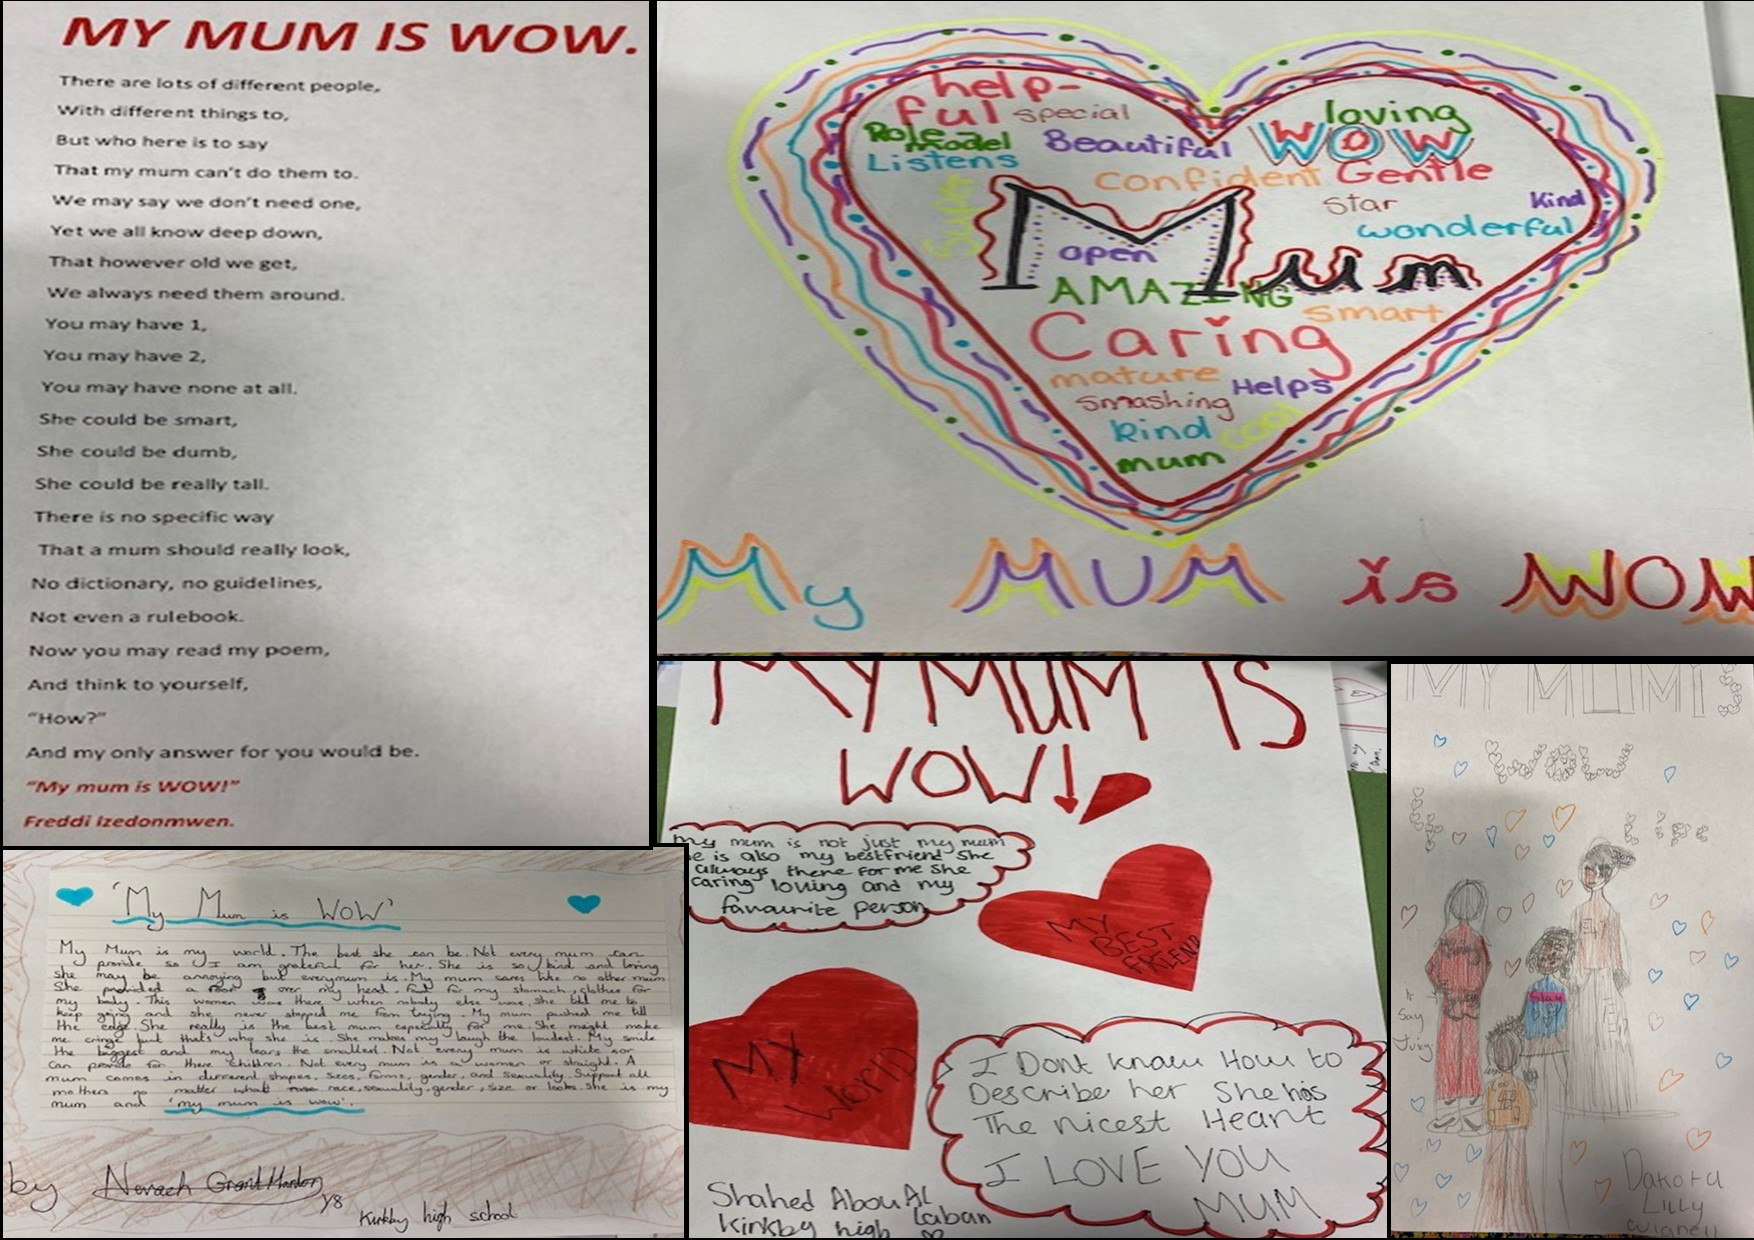 MY MUM IS WOW.
There are lots of different people,
With different things to,
But who here is to say
That my mum can't do them to.
We may say we don't need one,
Yet we all know deep down,
That however old we get,
We always need them around.
You may have 1,
You may have 2,
You may have none at all.
She could be smart,
She could be dumb,
She could be really tall.
There is no specific way
That a mum should really look,
No dictionary, no guidelines,
Not even a rulebook.
Now you may read my poem,
And think to yourself,
"How?"
And my only answer for you would be.
"My mum is WOW!"
Freddi Izedonmwen.
help-
ful special loving
Role model Beautiful WOW
Listens Confident Gentle
Super star Kind
wonderful
Mum
open
AMAZING
smart
Caring
mature Helps
smashing
kind cool
mum
My MUM is WOW
MY MUM IS
WOW!
my mum is not just my mum
she is also my bestfriend She
always there for me She
caring loving and my
favourite person
MY
BEST
FRIEND
MY
World
I Dont know How to
Describe her She has
The nicest Heart
I LOVE YOU
MUM
Shahed Abou Al
Laban
Kirkby high
MY MUM IS
WOW
Slay
Dakota
Lilly
'My Mum is WOW'
My Mum is my world. The best she can be. Not every mum can
provide so I am grateful for her. She is so kind and loving
she may be annoying but everymum is. My mum cares like no other mum
She provided a roof over my head, food for my stomach, clothes for
my body. This women was there when nobody else was. she told me to
keep going and she never stopped me from trying. My mum pushed me till
the edge. She really is the best mum especially for me. She might make
me cringe but that's who she is. She makes my laugh the loudest. My smile
the biggest and my tears the smallest. Not every mum is white nor
can provide for there children. Not every mum is a women or straight. A
mum comes in different shapes, sizes, forms, gender, and sexuality. Support all
mothers no matter what race, sexuality, gender, size or looks. She is my
mum and 'my mum is wow'.
by Nevaeh Grant Manton
Y8
Kirkby high school